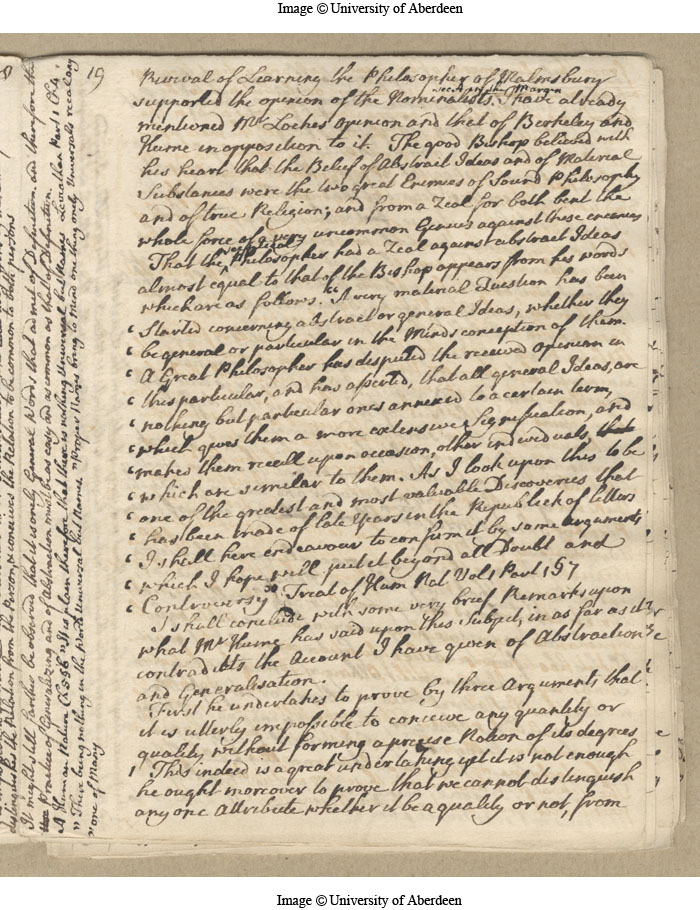 Image © University of Aberdeen
19
Revival of Learning the Philosopher of Malmsbury
see A on the Margin
supported the opinion of the Nominalists. I have already
mentioned Mr Lockes opinion and that of Berkeley and
Hume in opposition to it. The good Bishop believed with
his heart that the Belief of Abstract Ideas and of Material
Substances were the two great Enemies of Sound Philosophy
and of true Religion; and from a Zeal for both bent the
whole force of a very uncommon Genius against these enemies
That the Philosopher had a Zeal against abstract Ideas
almost equal to that of the Bishop appears from his words
which are as follows. "A very material Question has been
‘ Started concerning abstract or general Ideas, whether they
‘ be general or particular in the Minds conception of them.
‘ A Great Philosopher has disputed the received Opinion in
‘ this particular, and has asserted, that all general Ideas, are
‘ nothing but particular ones annexed to a certain term,
‘ which gives them a more extensive Signification, and
‘ makes them recall upon occasion, other individuals, that
‘ which are similar to them. As I look upon this to be
‘ one of the greatest and most valuable Discoveries that
‘ has been made of late Years in the Republick of letters
‘ I shall here endeavour to confirm it by some arguments
‘ which I hope will put it beyond all Doubt and
‘ Controversy" Treat of Hum Nat Vol 1 Part 1 § 7
I shall conclude with some very brief Remarks upon
what Mr Hume has said upon this Subject, in as far as it
contradicts the Account I have given of Abstraction
and Generalisation.
First he undertakes to prove by three Arguments that
it is utterly impossible to conceive any quantity or
quality without forming a precise Notion of its degrees
This indeed is a great undertaking yet it is not enough
he ought moreover to prove that we cannot distinguish
any one Attribute whether it be a quality or not, from
distinguishes the Relation from the Person, & conceives the Relation to be common to both persons
It might still farther be observed that it is onely General Words that admit of Definition and therefore the
the Practice of Generalizing and of Abstraction must be as easy and as common as that of Definition.
A Human Nature Ch 5 §6 "It is plain therefore that there is nothing Universal but Names Leviathan Part 1 Ch 4.
" There being nothing in the World Universal but Names. "Proper Names bring to mind one thing onely Universals recal any
" one of Many
Image © University of Aberdeen